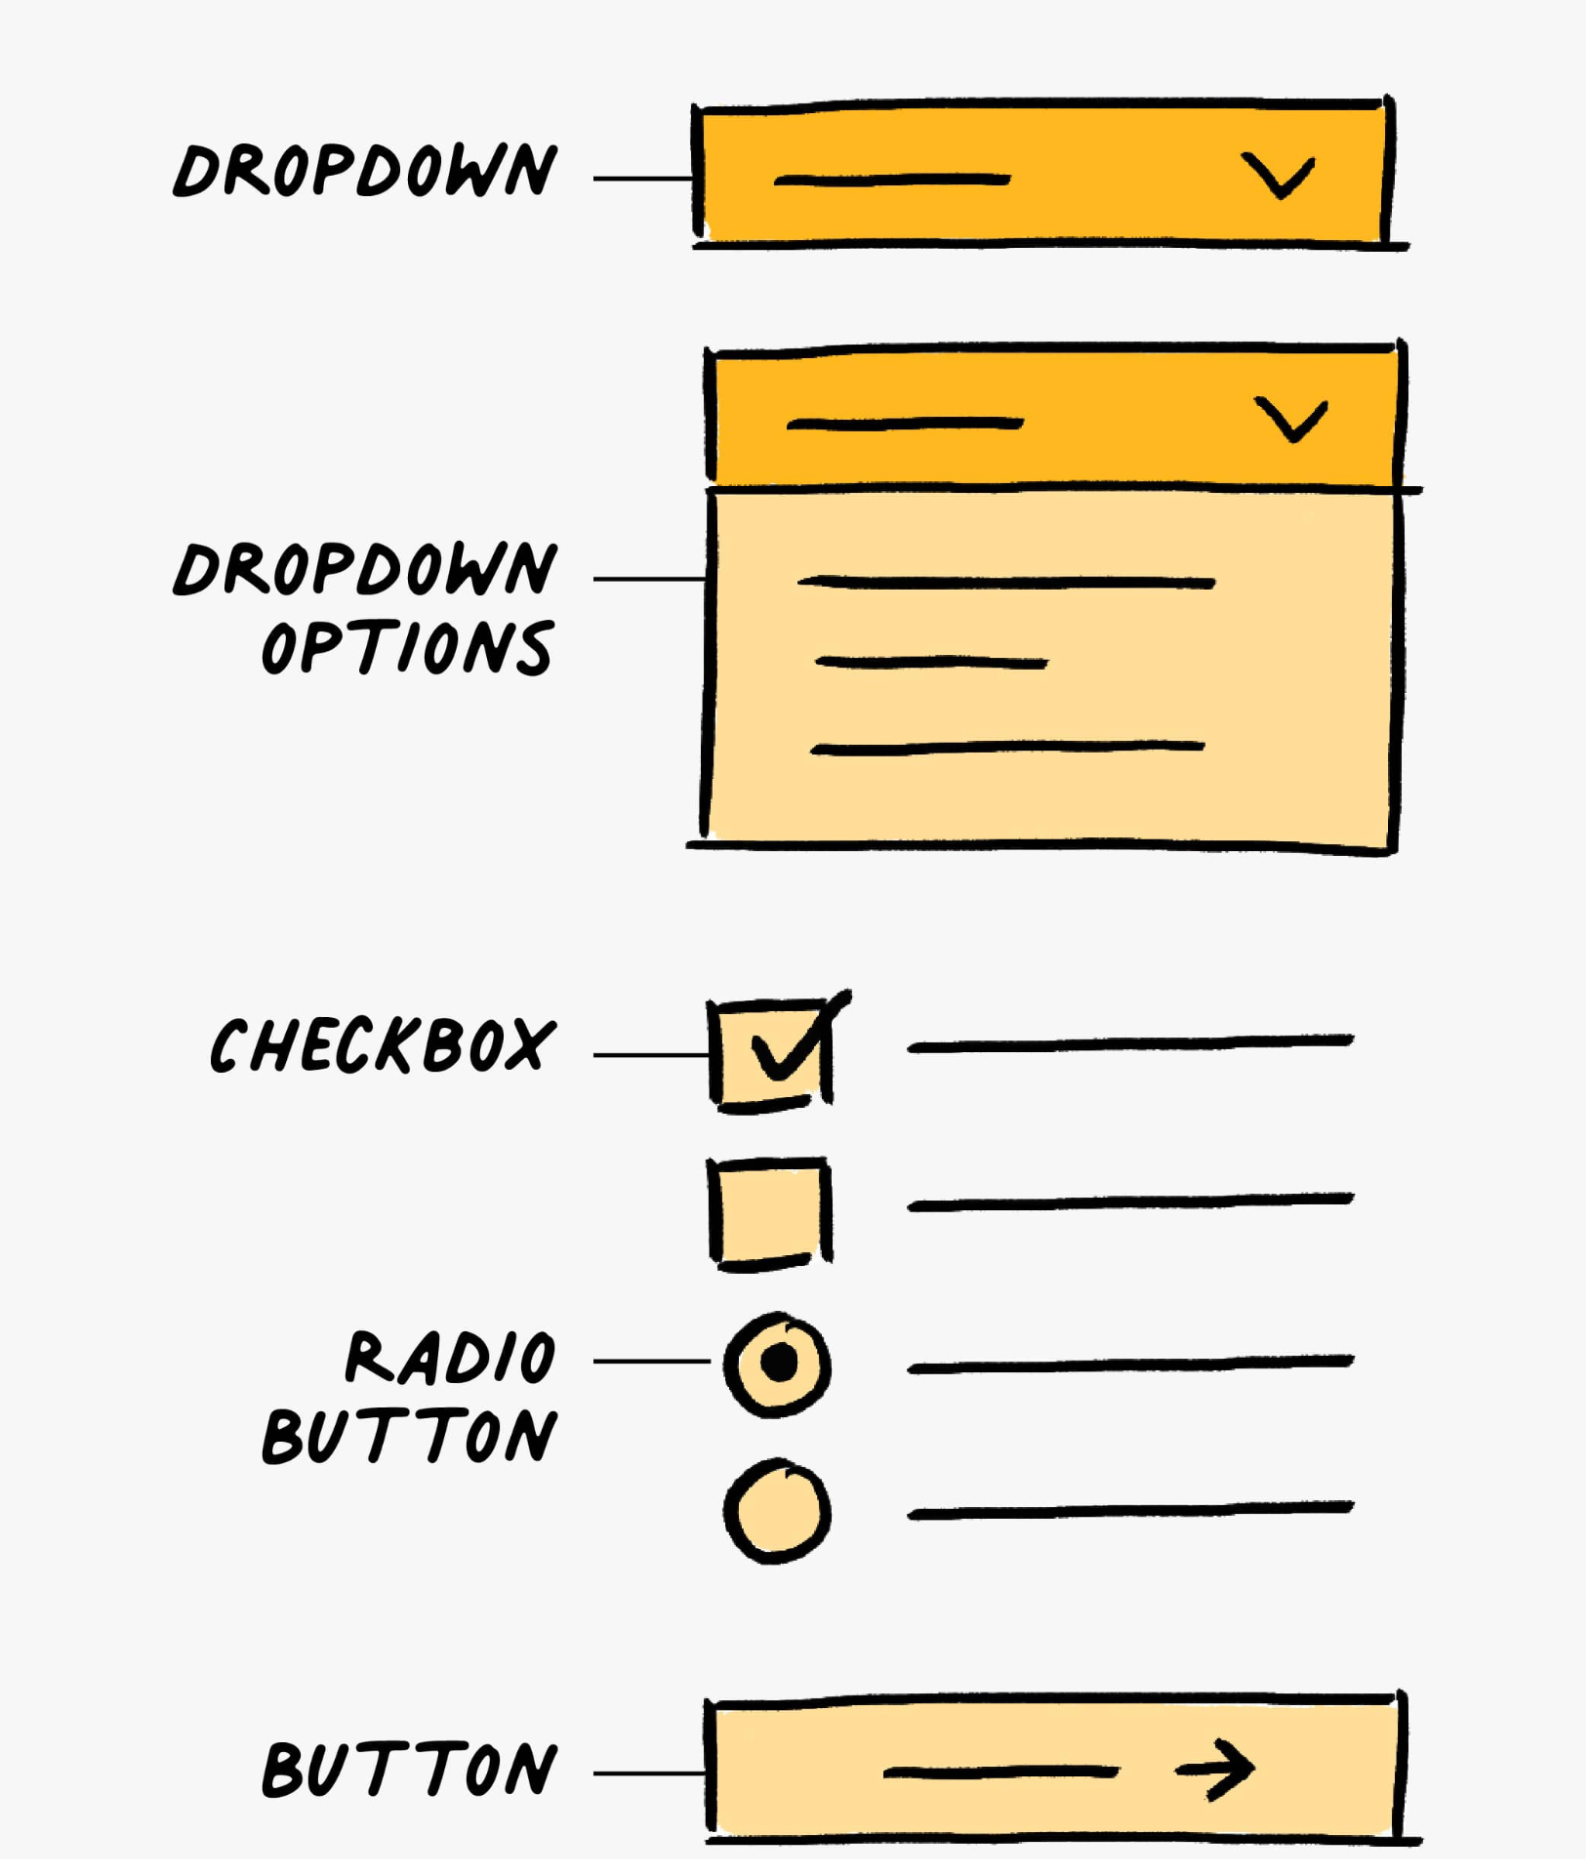 DROPDOWN
DROPDOWN
OPTIONS
CHECKBOX
RADIO
BUTTON
BUTTON